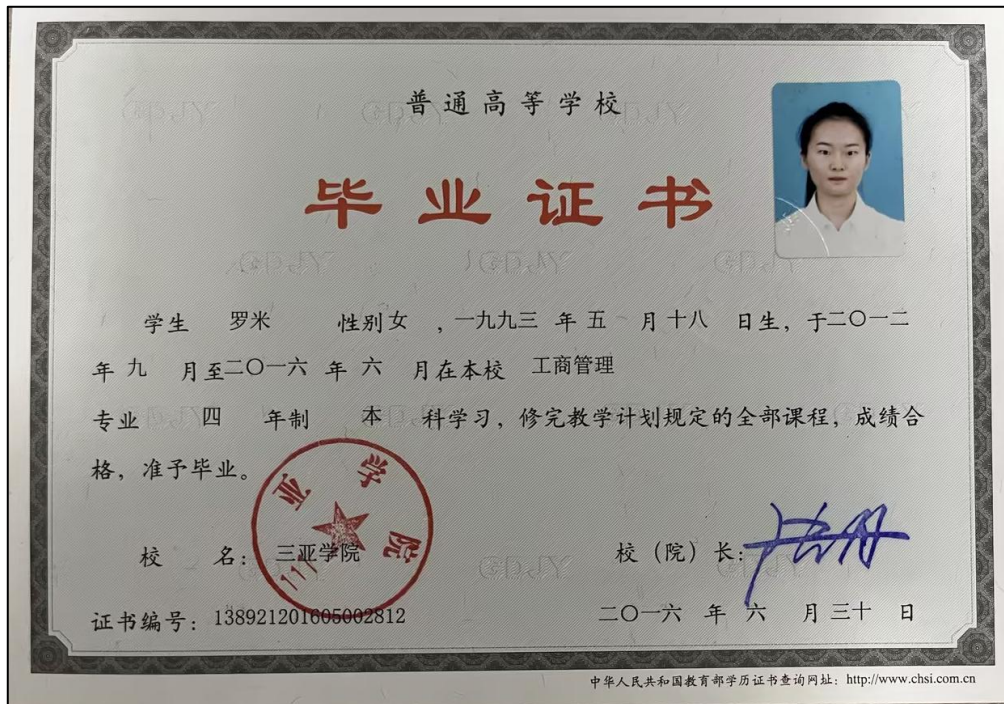 普通高等学校
毕业证书
学生 罗米 性别女 ，一九九三 年 五 月十八 日生，于二〇一二
年 九 月至二〇一六 年 六 月在本校 工商管理
专业 四 年制 本 科学习，修完教学计划规定的全部课程，成绩合
格，准予毕业。
三亚学院
校 名： 三亚学院
校（院）长：
证书编号：138921201605002812
二〇一六 年 六 月 三十 日
中华人民共和国教育部学历证书查询网址：http://www.chsi.com.cn